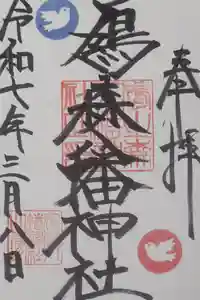 奉拝
鳩森八幡神社
令和七年三月八日